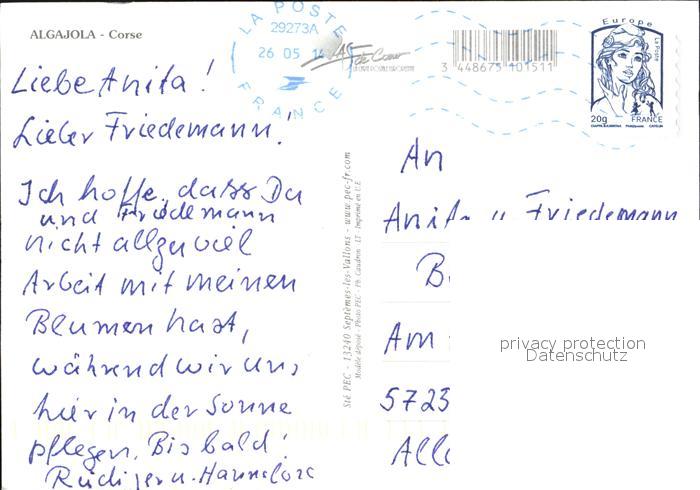 ALGAJOLA - Corse
LA POSTE
29273A
26 05
FRANCE
3 448675 101511
Europe
La Poste
20g
FRANCE
Liebe Anita!
Lieber Friedemann!
Ich hoffe, dass Du
und Friedemann
nicht allzu viel
Arbeit mit meinen
Blumen hast,
während wir uns
hier in der Sonne
pflegen. Bis bald!
Rüdiger u. Hannelore
Sté PEC - 13240 Septèmes-les-Vallons - www.pec-fr.com
Modèle déposé - Photo PEC - Ph. Caudron - LT - Imprimé en U.E.
An
Anita u Friedemann
B
Am
5723
All
privacy protection
Datenschutz